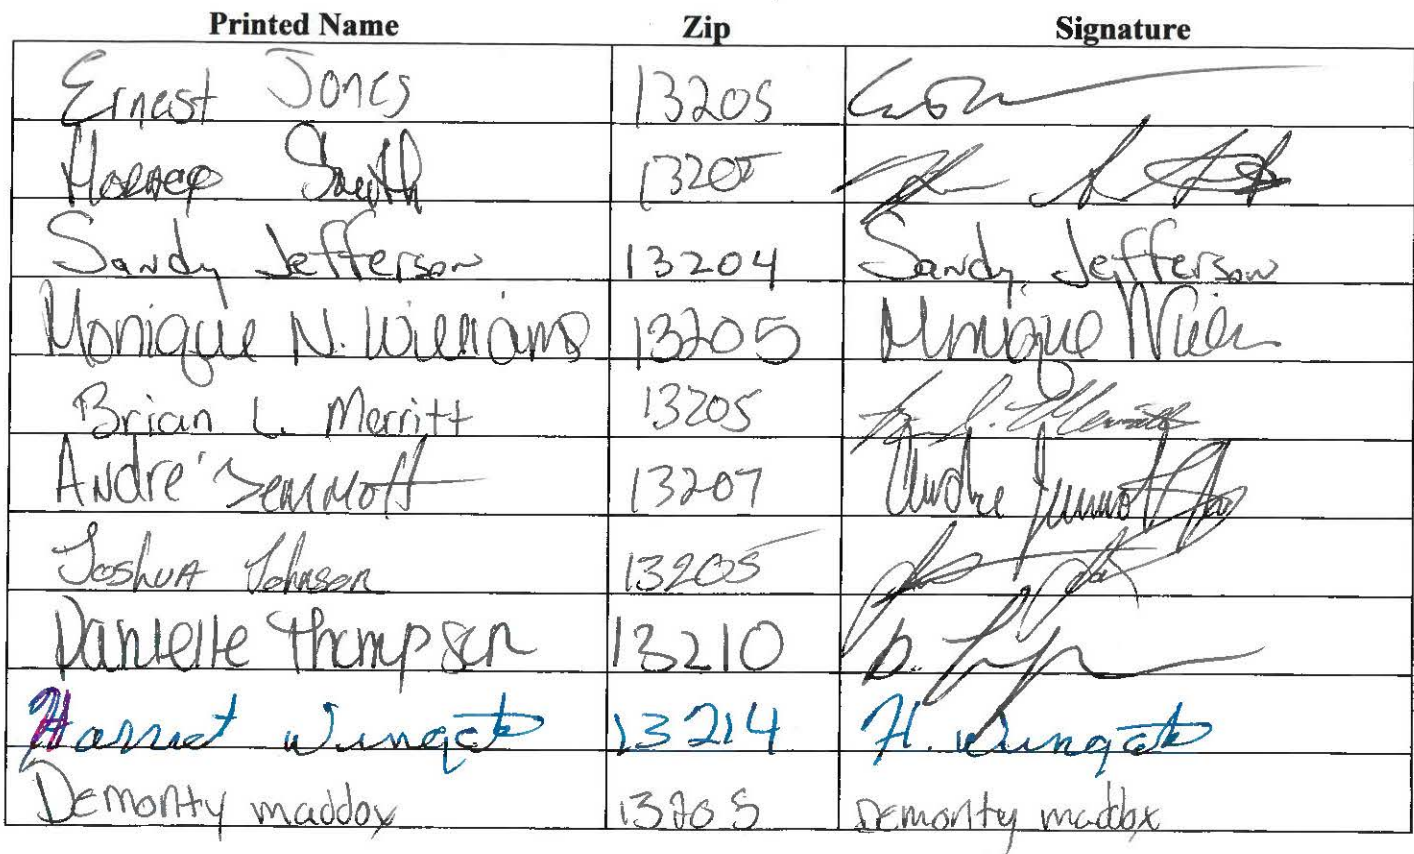 Printed Name Zip Signature
Ernest Jones 13205
Smith 13205
Sandy Jefferson 13204 Sandy Jefferson
Monique N. Williams 13205 Monique
Brian L. Merritt 13205 Merritt
Andre' Semmott 13207 Andre Semmott
Joshua Johnson 13205
Danielle Thompson 13210 D.
Harriet Wingate 13214 H. Wingate
Demonty maddox 13205 Demonty maddox